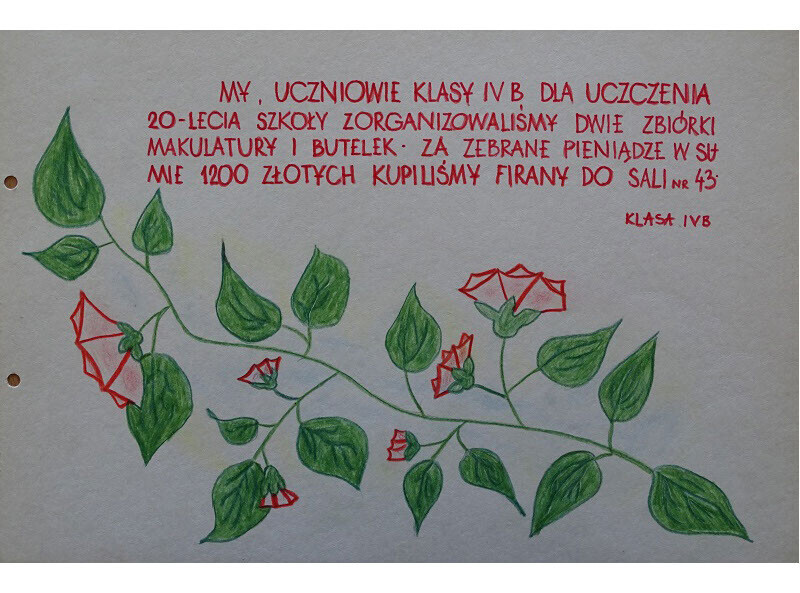 MY, UCZNIOWIE KLASY IV B DLA UCZCZENIA
20-LECIA SZKOŁY ZORGANIZOWALIŚMY DWIE ZBIÓRKI
MAKULATURY I BUTELEK. ZA ZEBRANE PIENIĄDZE W SU
MIE 1200 ZŁOTYCH KUPILIŚMY FIRANY DO SALI NR 43.
KLASA IVB